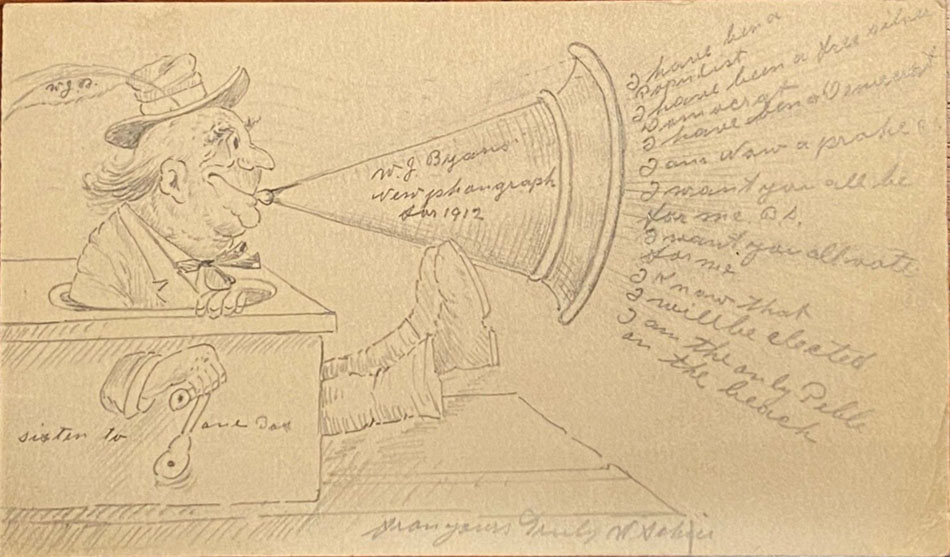 W.J.B.
W.J. Byans
New phongraph
for 1912
sixten to one Box
I have ben a
Populist
I have been a free silver
Democrat
I have ben a Democrat
I am Now a
I want you all be
for me
I want you all vote
for me
I Know that
I will be elected
I am the only Pebble
on the beach
from yours Truly